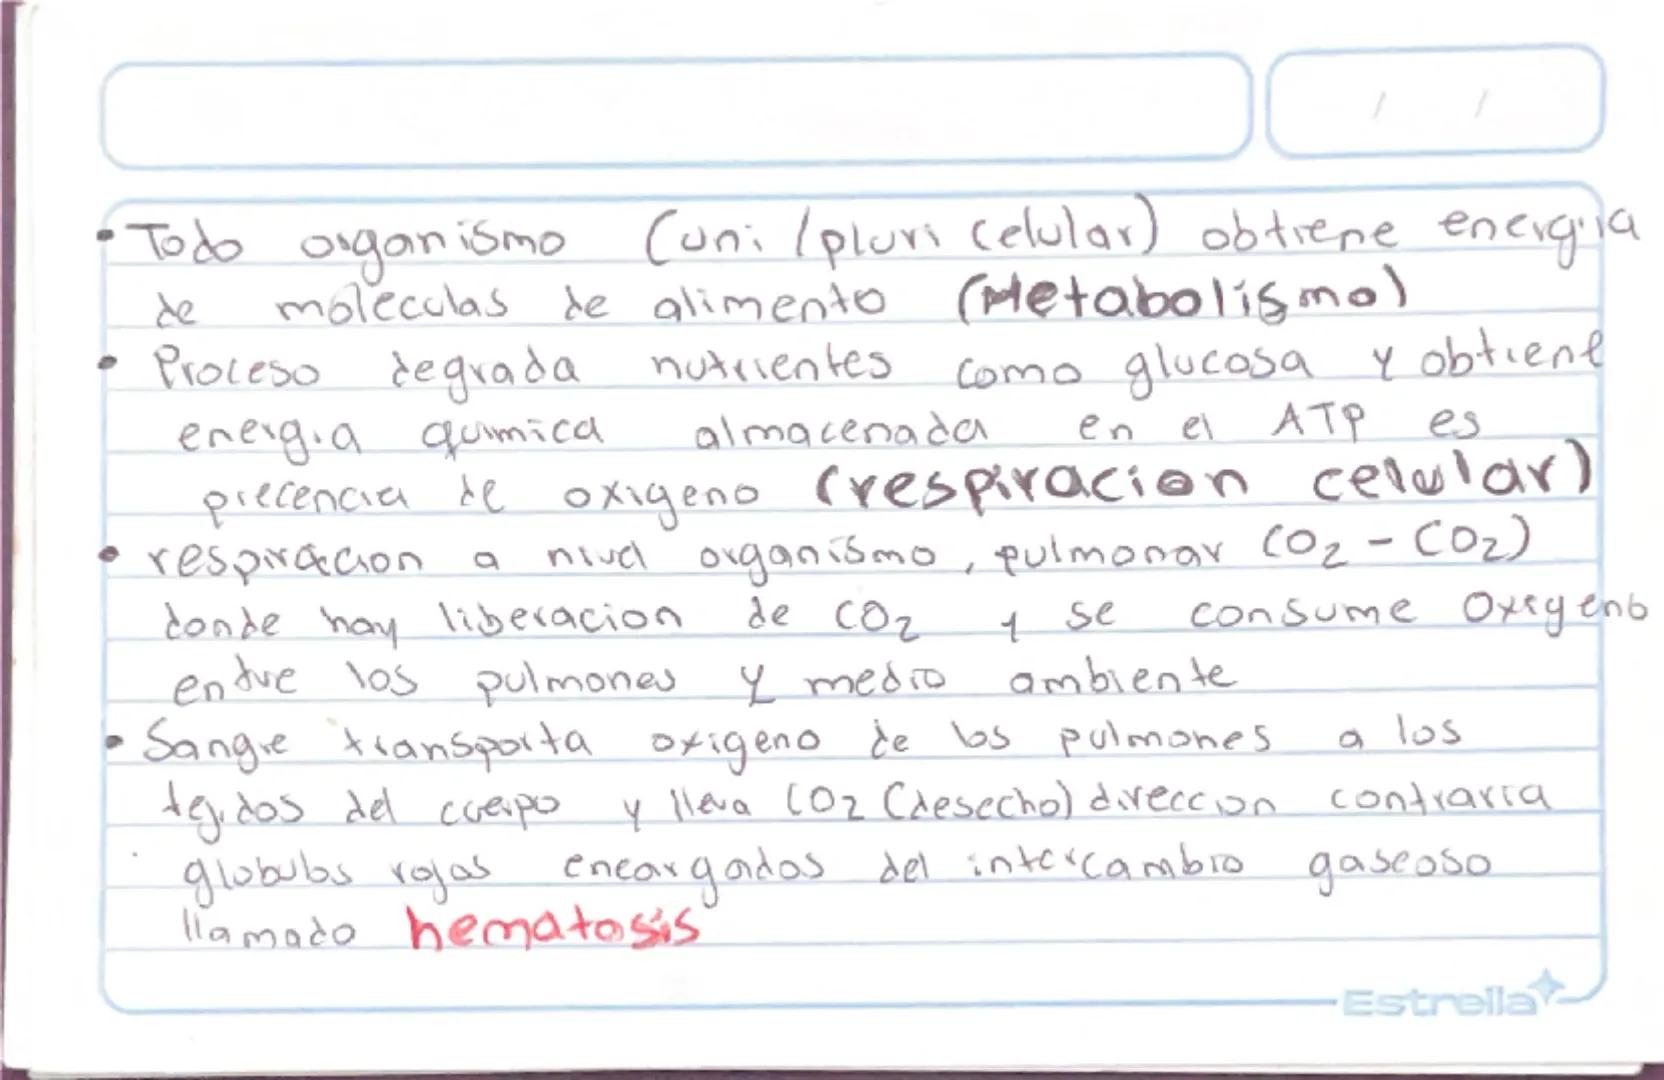 / /
• Todo organismo (uni/pluri celular) obtiene energia
de moleculas de alimento (Metabolismo)
• Proceso degrada nutrientes como glucosa y obtiene
energia quimica almacenada en el ATP es
precencia de oxigeno (respiracion celular)
• respiracion a nivel organismo, pulmonar (O2 - CO2)
donde hay liberacion de CO2 y se consume Oxigeno
entre los pulmones y medio ambiente
• Sangre transporta oxigeno de los pulmones a los
tejidos del cuerpo y lleva CO2 (desecho) direccion contraria
globulos rojas encargados del intercambio gaseoso
llamado hematosis
Estrella